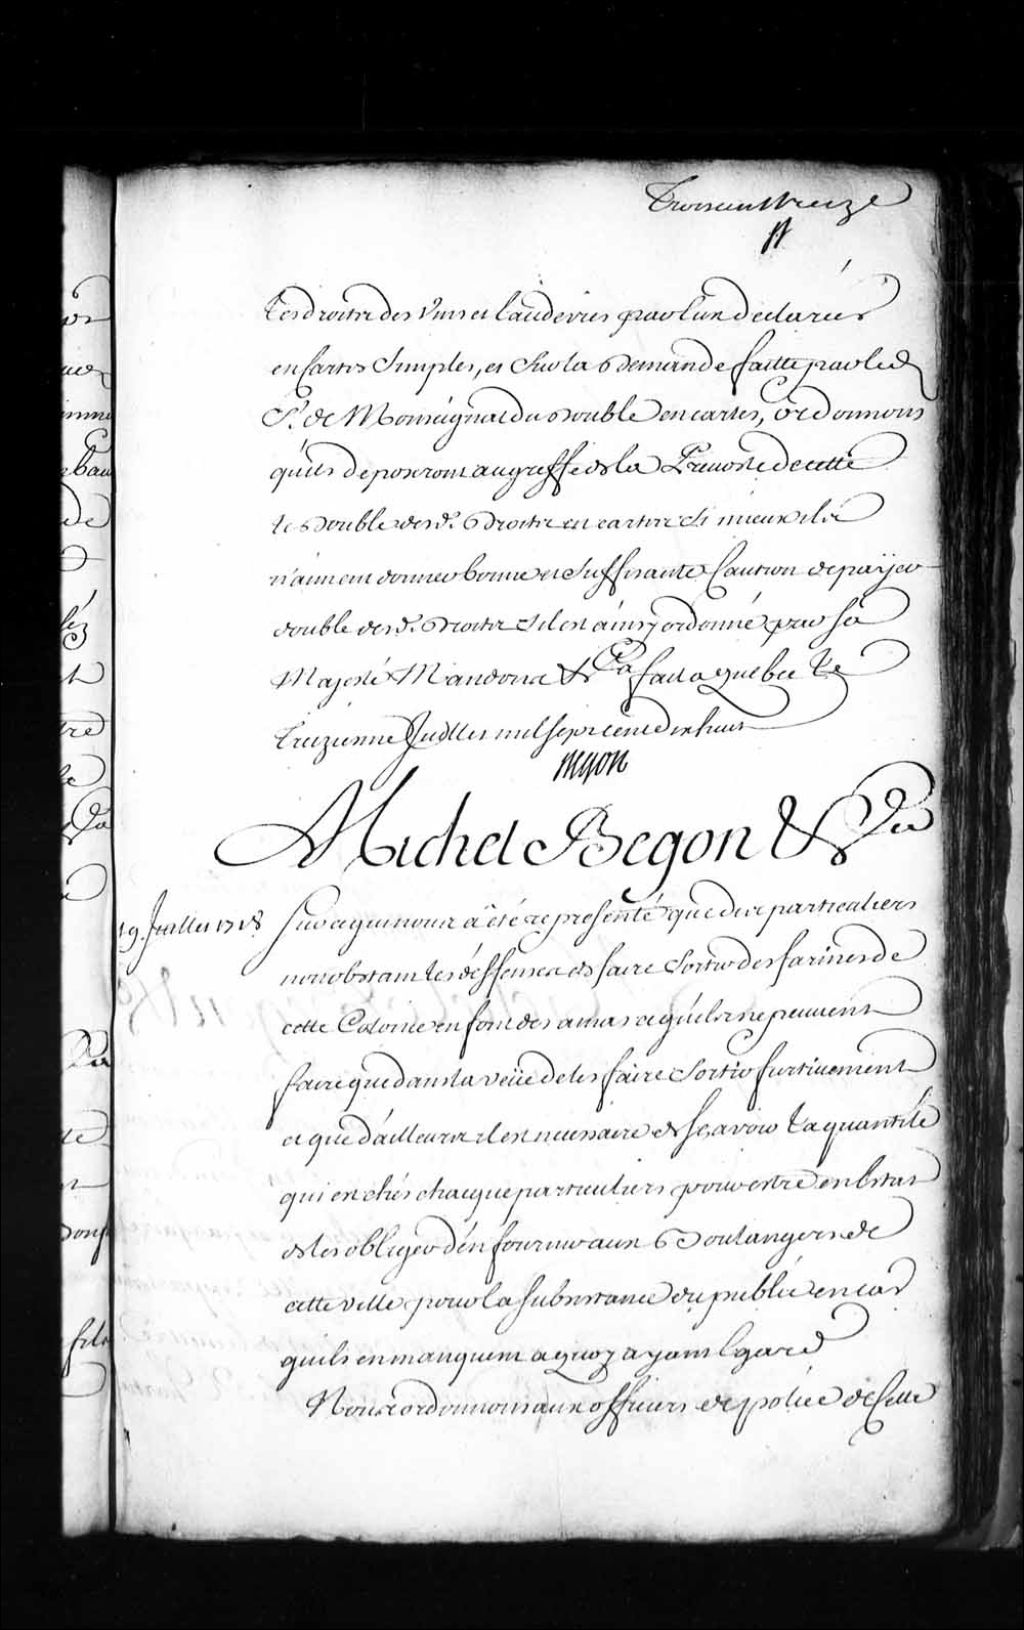 Troiscent treize
Les droits des Vins et Eaudevies par l'un declarés
en Cartes Simples, et Sur la demande faitte par led
Sr. de Monseignat du double en cartes, ordonnons
quils deposeront au greffe de la Prevosté de cette
le double desd. droits en cartes Si mieux ils
n'aiment donner bonne et Suffisante Caution de payer
double desd. droits S'il est ainsy ordonné par Sa
Majesté Mandons &ca fait a quebec Le
Treizieme Juillet mil sept cent dix huit
Begon
Michel Begon &ca
19. Juillet 1718.
Sur ce qui nous a été representé que des particuliers
nonobstant les deffenses de faire Sortir des farines de
cette Colonie en font des amas ce qu'ils ne peuvent
faire que dans la veüe de les faire Sortir furtivement
et que d'ailleurs il est necessaire de sçavoir La quantité
qui en chés chacque particuliers pour estre en Estat
de les obliger d'en fournir aux Boulangers de
cette ville pour la subsistance du public en cas
quils en manquent a quoy ayant Egard
Nous ordonnons aux officiers de police de Cette